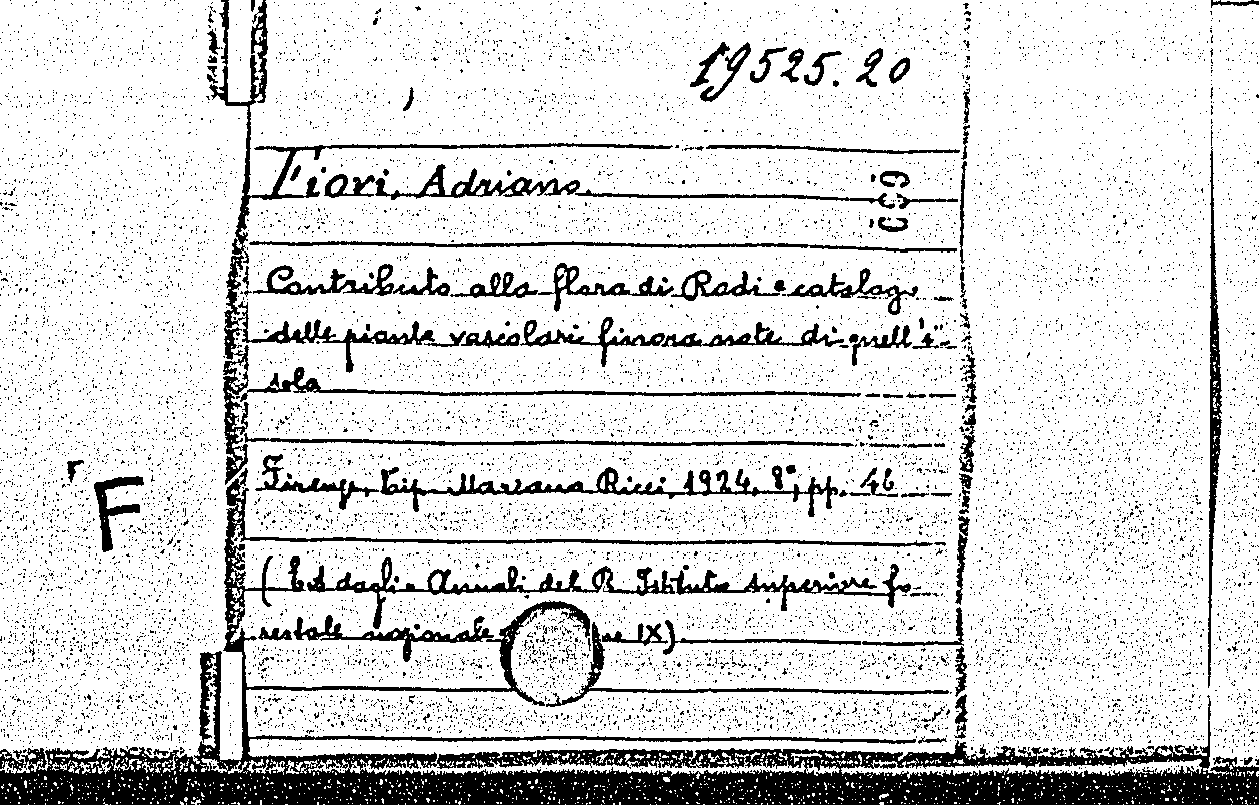 19525.20
Fiori, Adriano.
Contributo alla flora di Rodi e catalogo
delle piante vascolari finora note di quell'i-
sola
Firenze, Tip. Mariano Ricci, 1924, 8°, pp. 46
(Est. dagli Annali del R. Istituto superiore fo-
restale nazionale IX)
F